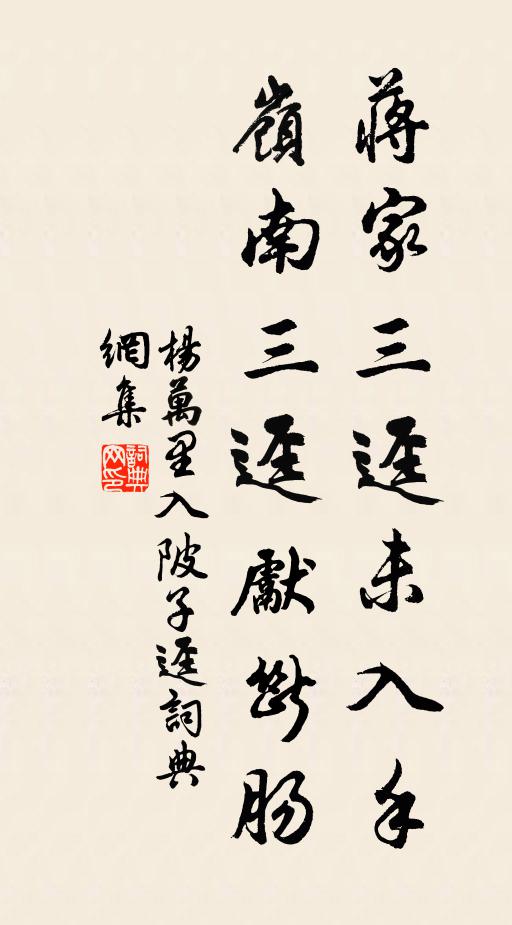 蔣家三逕未入手
嶺南三逕斷腸
楊萬里入陂子逕詞典
網集
詞典
网印